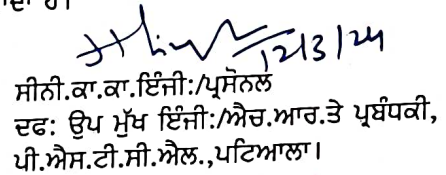 12/3/24
ਸੀਨੀ.ਕਾ.ਕਾ.ਇੰਜੀ:/ਪ੍ਰਸੋਨਲ
ਦਫ: ਉਪ ਮੁੱਖ ਇੰਜੀ:/ਐਚ.ਆਰ.ਤੇ ਪ੍ਰਬੰਧਕੀ,
ਪੀ.ਐਸ.ਟੀ.ਸੀ.ਐਲ.,ਪਟਿਆਲਾ।